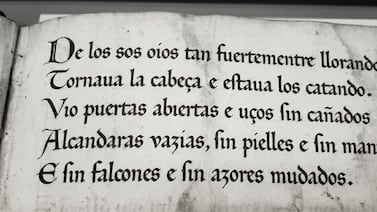 De los sos oios tan fuertementre llorando
Tornaua la cabeça e eſtaua los catando.
Vio puertas abiertas e uços ſin cañados
Alcandaras vazias, ſin pielles e ſin man
E ſin falcones e ſin azores mudados.